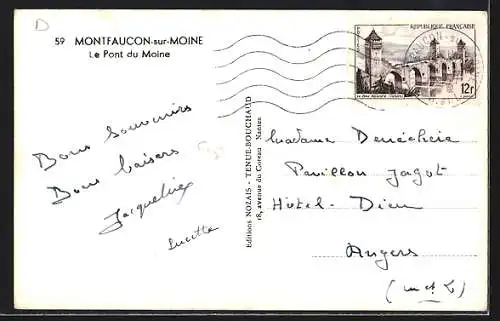 D
59 MONTFAUCON-sur-MOINE
Le Pont du Moine
RÉPUBLIQUE FRANÇAISE
12f
Bons souvenirs
Bons baisers
Jacqueline
Lucette
Editions NOZAIS - TENUE-BOUCHAUD
18, avenue du Coteau Nantes
Madame Denécheau
Pavillon Jagot
Hôtel-Dieu
Angers
(M et L)